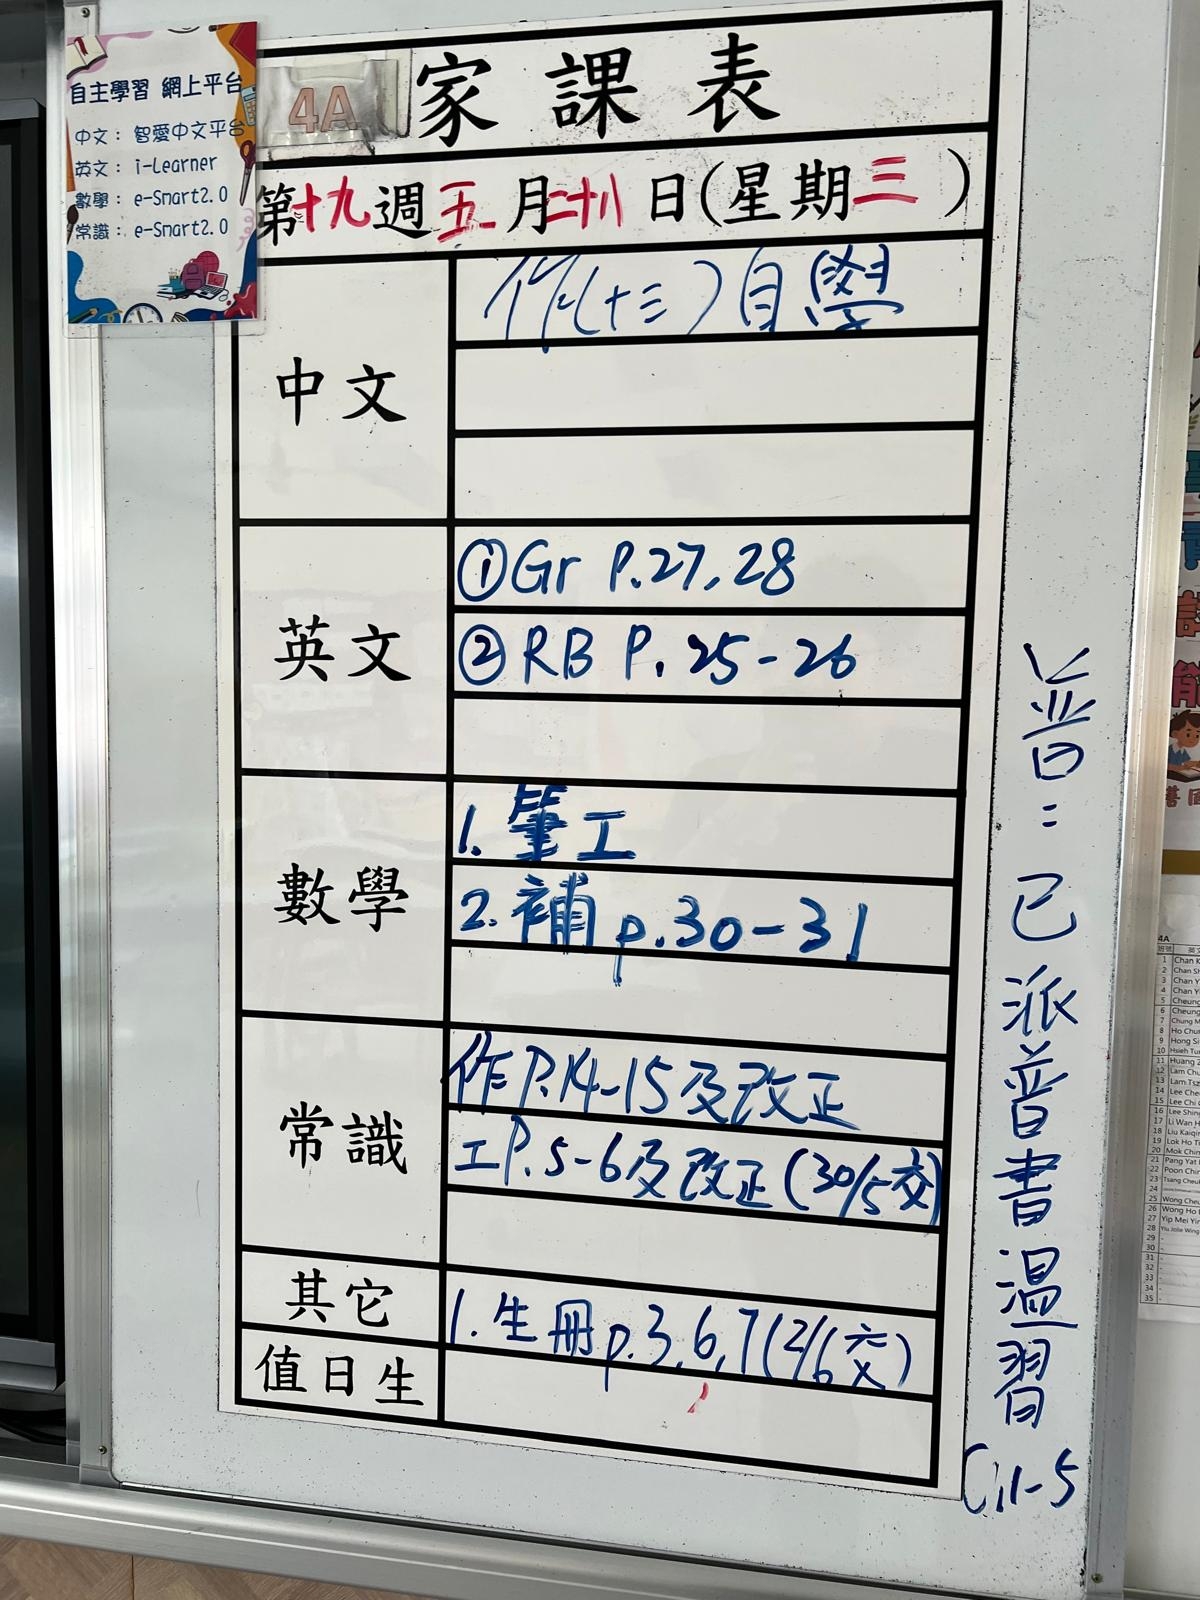 自主學習 網上平台
中文： 智愛中文平台
英文： i-Learner
數學： e-Smart2.0
常識： e-Smart2.0
4A 家課表
第十九週五月二十八日(星期三)
中文
作(十三)自學
英文
①Gr P.27,28
②RB P.25-26
數學
1. 筆工
2. 補 p.30-31
常識
作P.14-15及改正
工P.5-6及改正(30/5交)
其它
1. 生冊p.3,6,7(2/6交)
值日生
普：已派普書溫習
4A
班號
1 Chan K
2 Chan Sh
3 Chan Y
4 Chan Yi
5 Cheung
6 Cheung
7 Chung M
8 Ho Chu
9 Hong Si
10 Hsieh Tu
11 Huang Z
12 Lam Chu
13 Lam Tsz
14 Lee Che
15 Lee Chi
16 Lee Shin
17 Li Wan H
18 Liu Kaiqi
19 Lok Ho Ti
20 Mok Chin
21 Pang Yat
22 Poon Chin
23 Tsang Cheu
24
25 Wong Cheu
26 Wong Ho
27 Yip Mei Yi
28 Yiu Jolie Wing
29 -
30 -
31 -
32 -
33 -
34 -
35 -